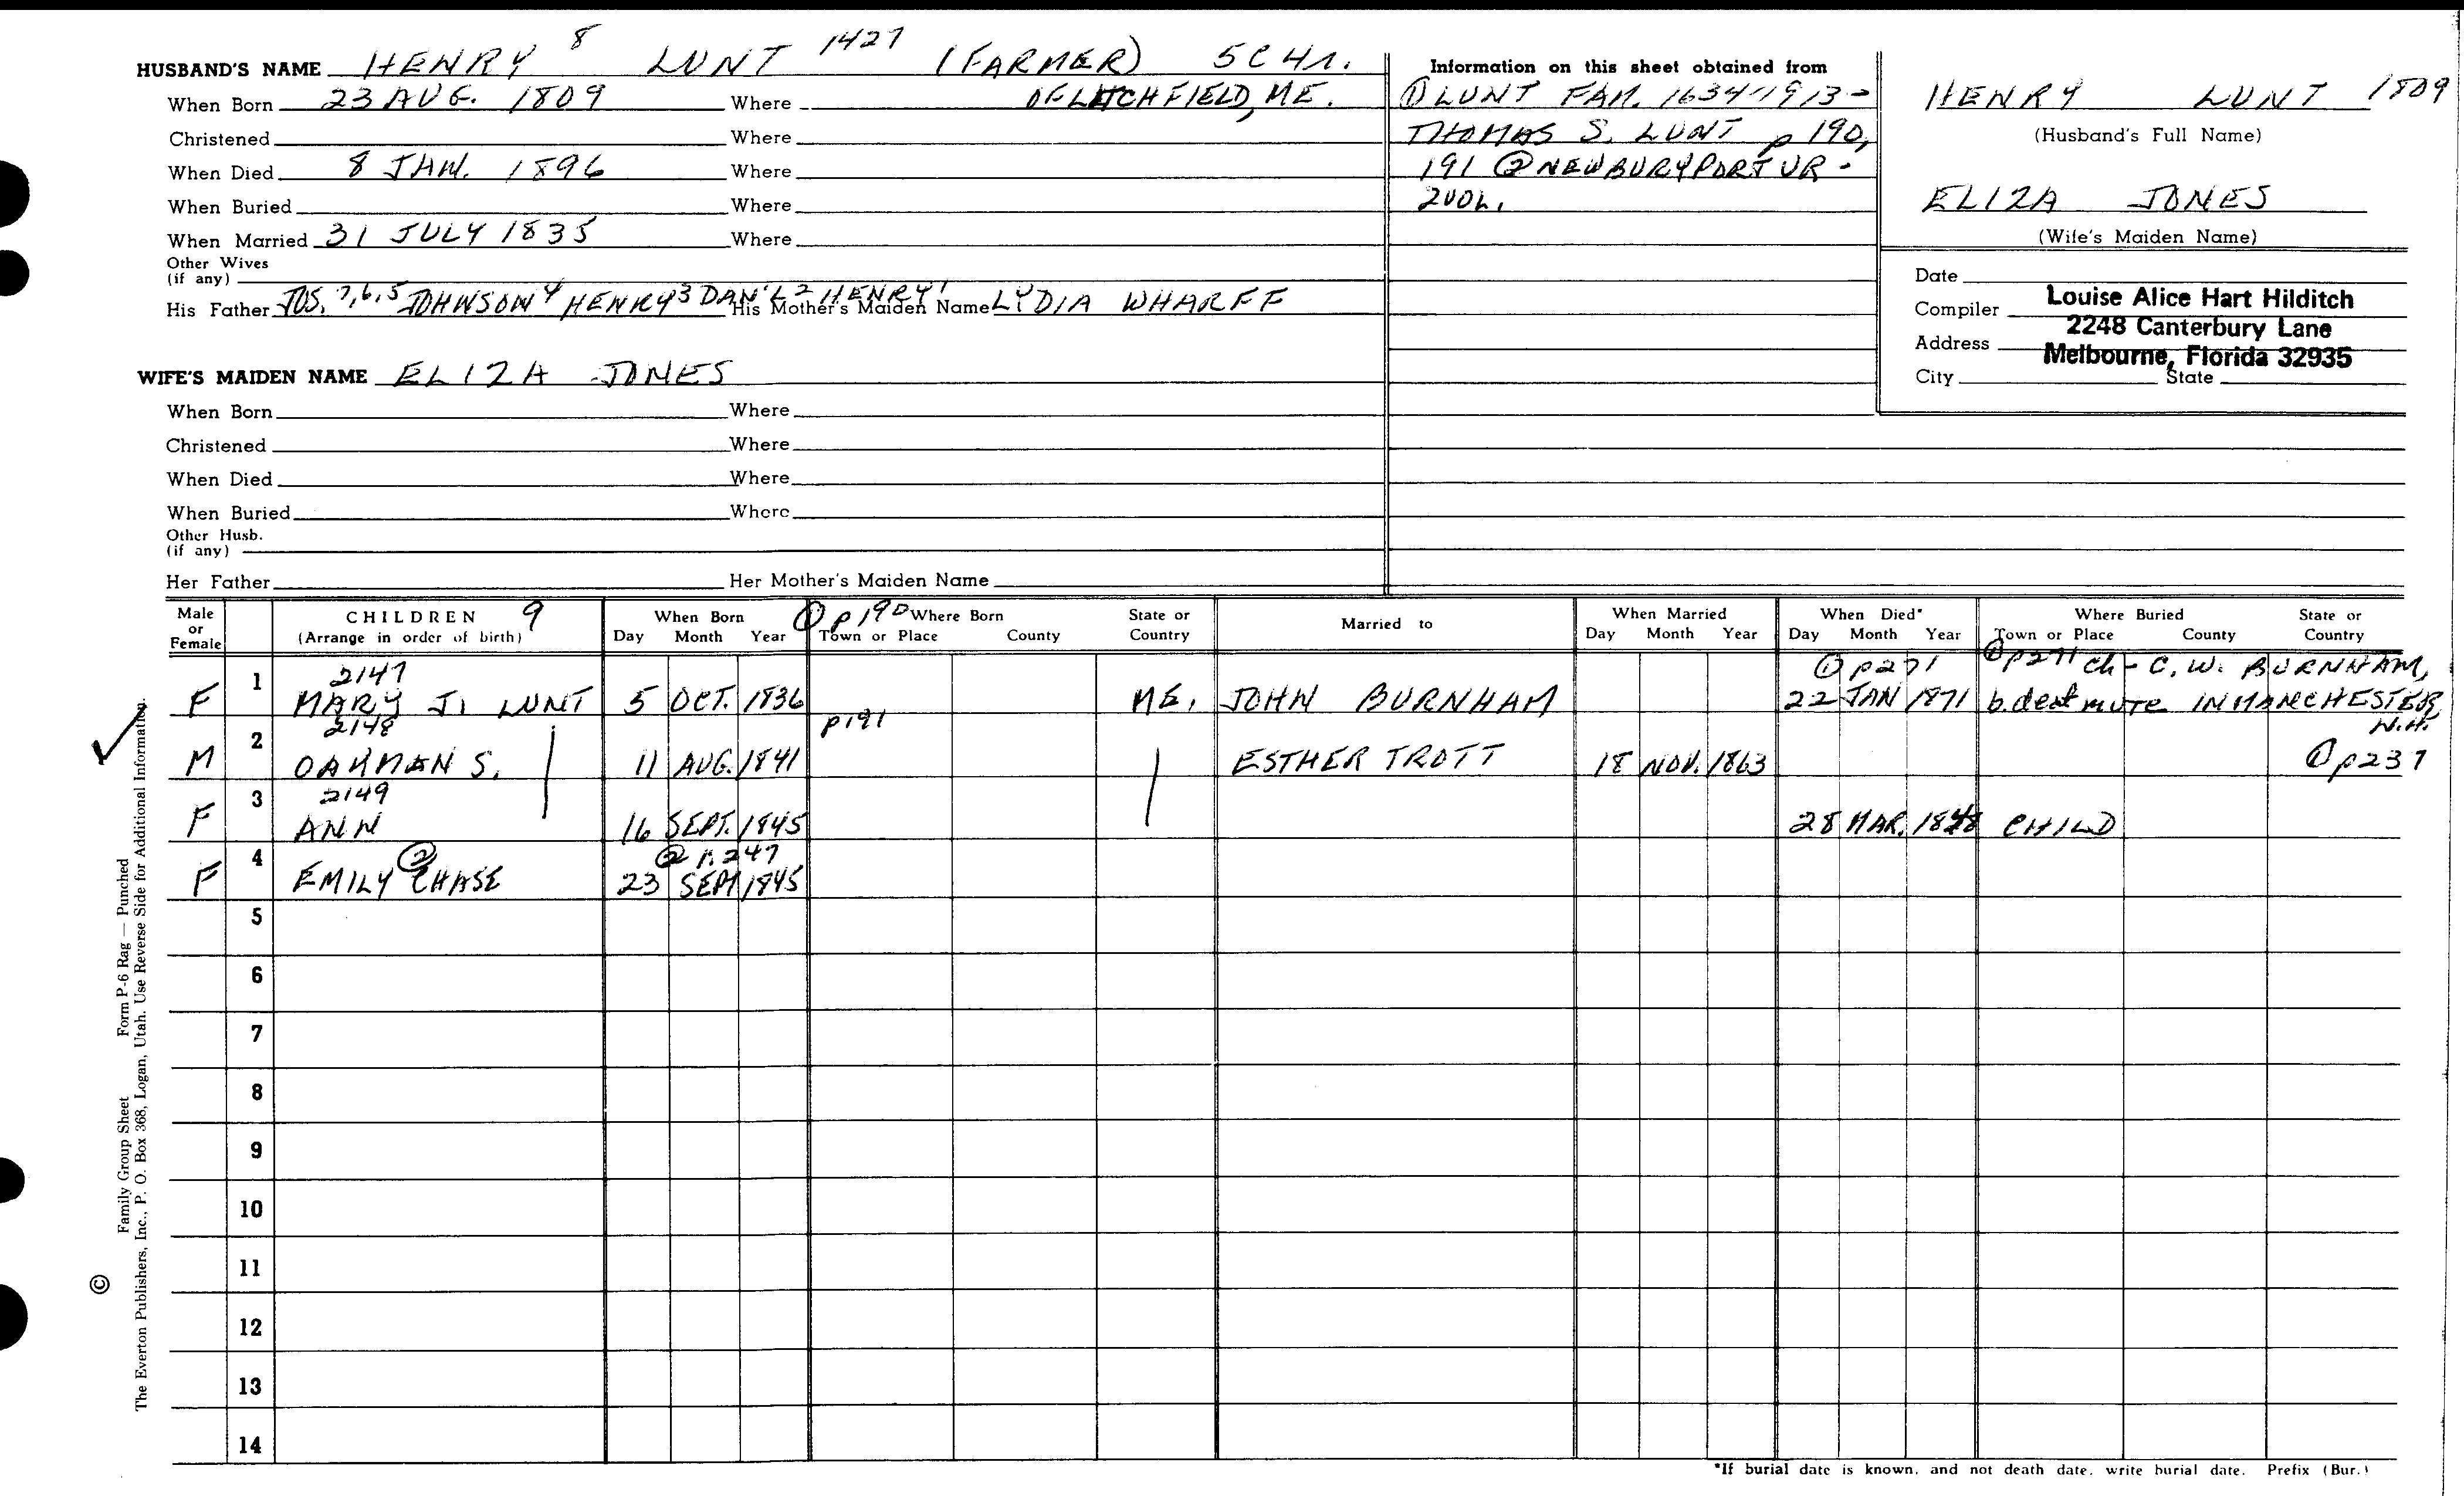 HUSBAND'S NAME HENRY 8 LUNT 1427 (FARMER) 5CH1.
When Born 23 AUG. 1809 Where OF LITCHFIELD, ME.
Christened Where
When Died 8 JAN. 1896 Where
When Buried Where
When Married 31 JULY 1835 Where
Other Wives
(if any)
His Father JOS. 7,6,5 JOHNSON 4 HENRY 3 DAN'L 2 HENRY 1 His Mother's Maiden Name LYDIA WHARFF
WIFE'S MAIDEN NAME ELIZA JONES
When Born Where
Christened Where
When Died Where
When Buried Where
Other Husb.
(if any)
Her Father Her Mother's Maiden Name
Information on this sheet obtained from
① LUNT FAM. 1634-1913-
THOMAS S. LUNT p 190,
191 ② NEWBURYPORT VR -
2VOL.
HENRY LUNT 1809
(Husband's Full Name)
ELIZA JONES
(Wife's Maiden Name)
Date
Compiler Louise Alice Hart Hilditch
Address 2248 Canterbury Lane
Melbourne, Florida 32935
City State
Male or Female CHILDREN 9 (Arrange in order of birth) When Born Day Month Year ① p190 Where Born Town or Place County State or Country Married to When Married Day Month Year When Died* Day Month Year Where Buried Town or Place County State or Country
2147 ① p271 ① p271 ch - C. W. BURNHAM,
F 1 MARY J. LUNT 5 OCT. 1836 ME. JOHN BURNHAM 22 JAN 1871 b. deaf mute IN MANCHESTER, N.H.
2148 p191
M 2 OAKMAN S. 11 AUG. 1841 ESTHER TROTT 18 NOV. 1863 ① p237
2149
F 3 ANN 16 SEPT. 1845 28 MAR. 1848 CHILD
② ② p. 247
F 4 EMILY CHASE 23 SEPT 1845
5
6
7
8
9
10
11
12
13
14
*If burial date is known, and not death date, write burial date. Prefix (Bur.)
© Family Group Sheet Form P-6 Rag — Punched
The Everton Publishers, Inc., P. O. Box 368, Logan, Utah. Use Reverse Side for Additional Information.